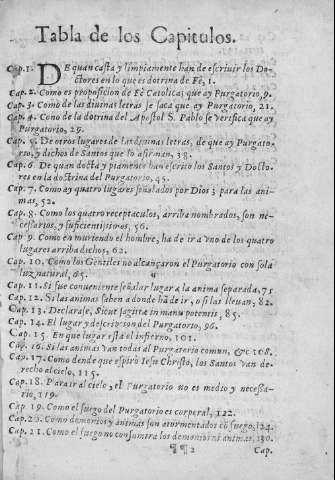 Tabla de los Capitulos.
Cap. 1. DE quan casta y limpiamente han de escriuir los Do-
ctores en lo que es dotrina de Fè, 1.
Cap. 2. Como es proposicion de Fè Catolica, que ay Purgatorio, 9.
Cap. 3. Como de las diuinas letras se saca que ay Purgatorio, 21.
Cap. 4. Como de la dotrina del Apostol S. Pablo se verifica que ay
Purgatorio, 29.
Cap. 5. De otros lugares de las diuinas letras, de que ay Purgato-
rio, y dichos de Santos que lo afirman, 38.
Cap. 6. De quan docta y piamente han escrito los Santos y Docto-
res en la doctrina del Purgatorio, 45.
Cap. 7. Como ay quatro lugares señalados por Dios para las ani-
mas, 52.
Cap. 8. Como los quatro receptaculos, arriba nombrados, son ne-
cessarios, y suficientissimos, 56.
Cap. 9. Como en muriendo el hombre, ha de ir a vno de los quatro
lugares arriba dichos, 62.
Cap. 10. Como los Gentiles no alcançaron el Purgatorio con sola
luz natural, 65.
Cap. 11. Si fue conueniente señalar lugar a la anima separada, 75
Cap. 12. Si las animas saben a donde hã de ir, o si las lleuan, 82.
Cap. 13. Declarase, Sicut sagitte in manu potentis, 85.
Cap. 14. El lugar y descripcion del Purgatorio, 96.
Cap. 15. En que lugar està el infierno, 101.
Cap. 16. Si las animas van todas al Purgatorio comun, &c 108.
Cap. 17. Como dende que espirò Iesu Christo, los Santos van de-
recho al cielo, 115.
Cap. 18. Para ir al cielo, el Purgatorio es medio y necessa-
rio, 119.
Cap. 19. Como el fuego del Purgatorio es corporal, 122.
Cap. 20. Como demonios y animas son atormentados cõ fuego, 124.
Cap. 21. Como el fuego no consumira los demonios ni animas, 130.
¶¶ 2 Cap.